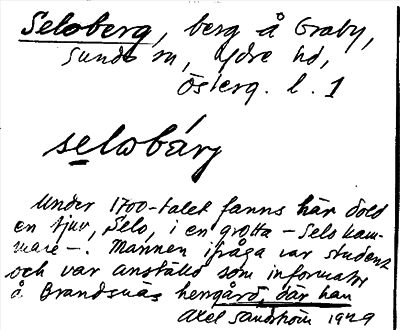 Seloberg, berg å Graby,
Sunds sn, Ydre hd,
Österg. l. 1
selobärj
Under 1700-talet fanns här dold
en tjuv, Selo, i en grotta – Selo kam-
mare –. Mannen ifråga var student
och var anställd som informator
å Brandsnäs herrgård, där han
Axel Sandström 1929